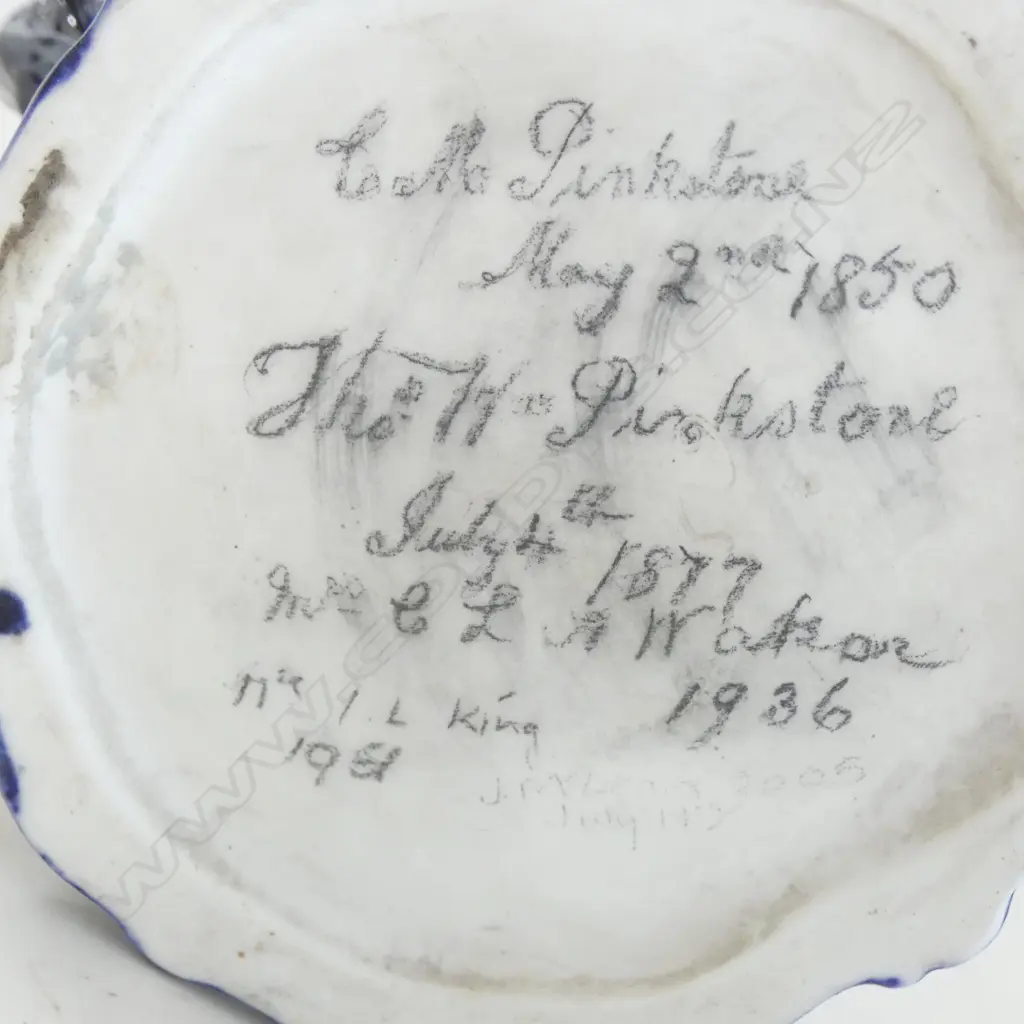 C M Pinkstone
May 2nd 1850
Thos Wm Pinkstone
July 4th
1877
Mrs C L A Watson
1936
Mrs I. L King
1951
2005
July